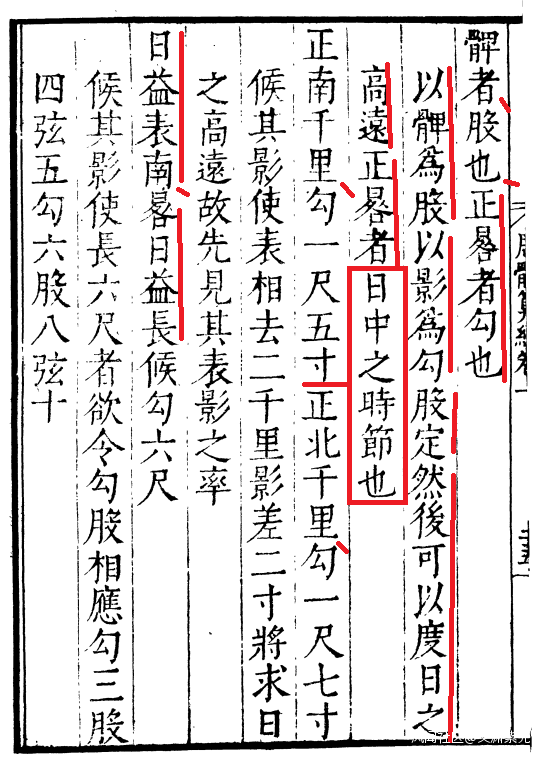 髀者股也正晷者勾也
以髀爲股以影爲勾股定然後可以度日之
高遠正晷者日中之時節也
正南千里勾一尺五寸正北千里勾一尺七寸
候其影使表相去二千里影差二寸將求日
之高遠故先見其表影之率
日益表南晷日益長候勾六尺
候其影使長六尺者欲令勾股相應勾三股
四弦五勾六股八弦十